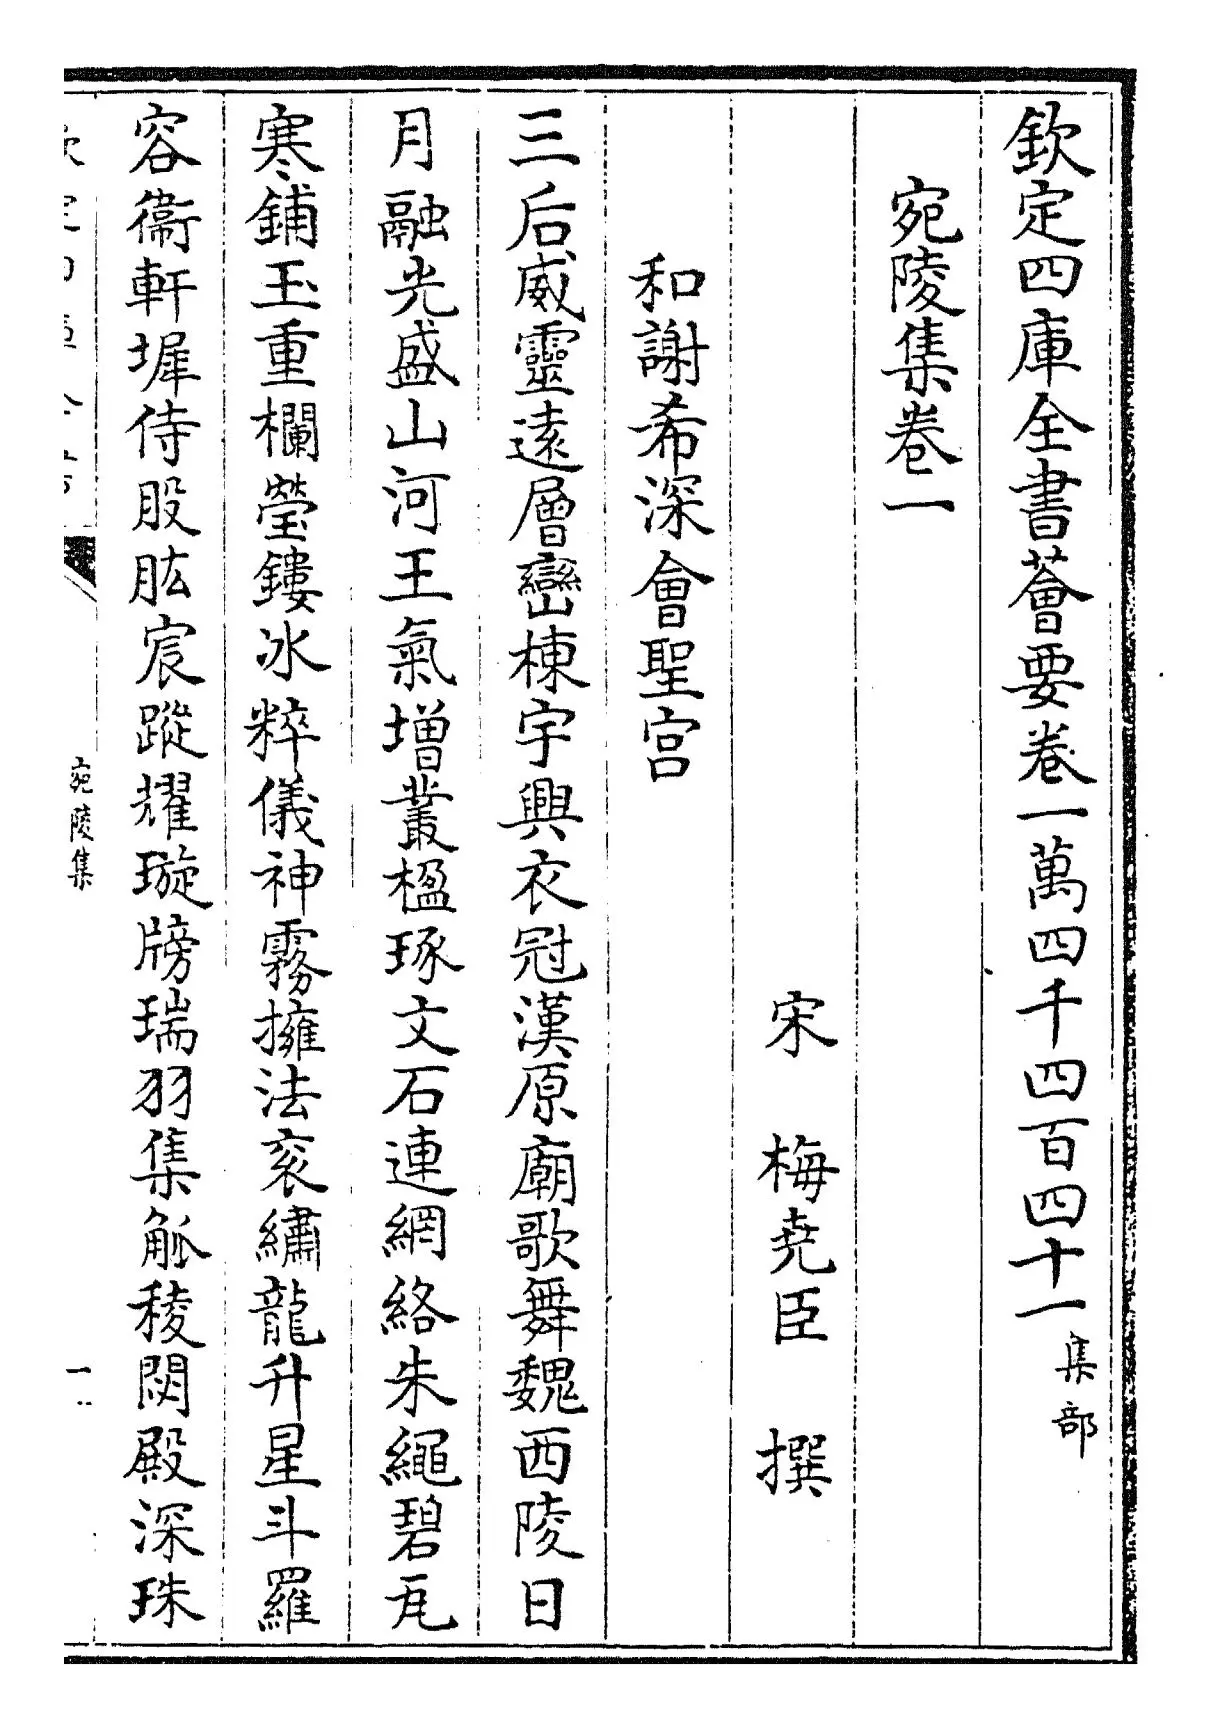 欽定四庫全書薈要卷一萬四千四百四十一 集部
宛陵集卷一
宋 梅尭臣 撰
和謝希深會聖宮
三后威靈逺層巒棟宇興衣冠漢原廟歌舞魏西陵日
月融光盛山河王氣增叢楹琢文石連網絡朱繩碧瓦
寒鋪玉重欄瑩鏤冰粹儀神霧擁法衮繡龍升星斗羅
容衞軒墀侍股肱宸蹤耀璇牓瑞羽集觚稜閟殿深珠
宛陵集 一